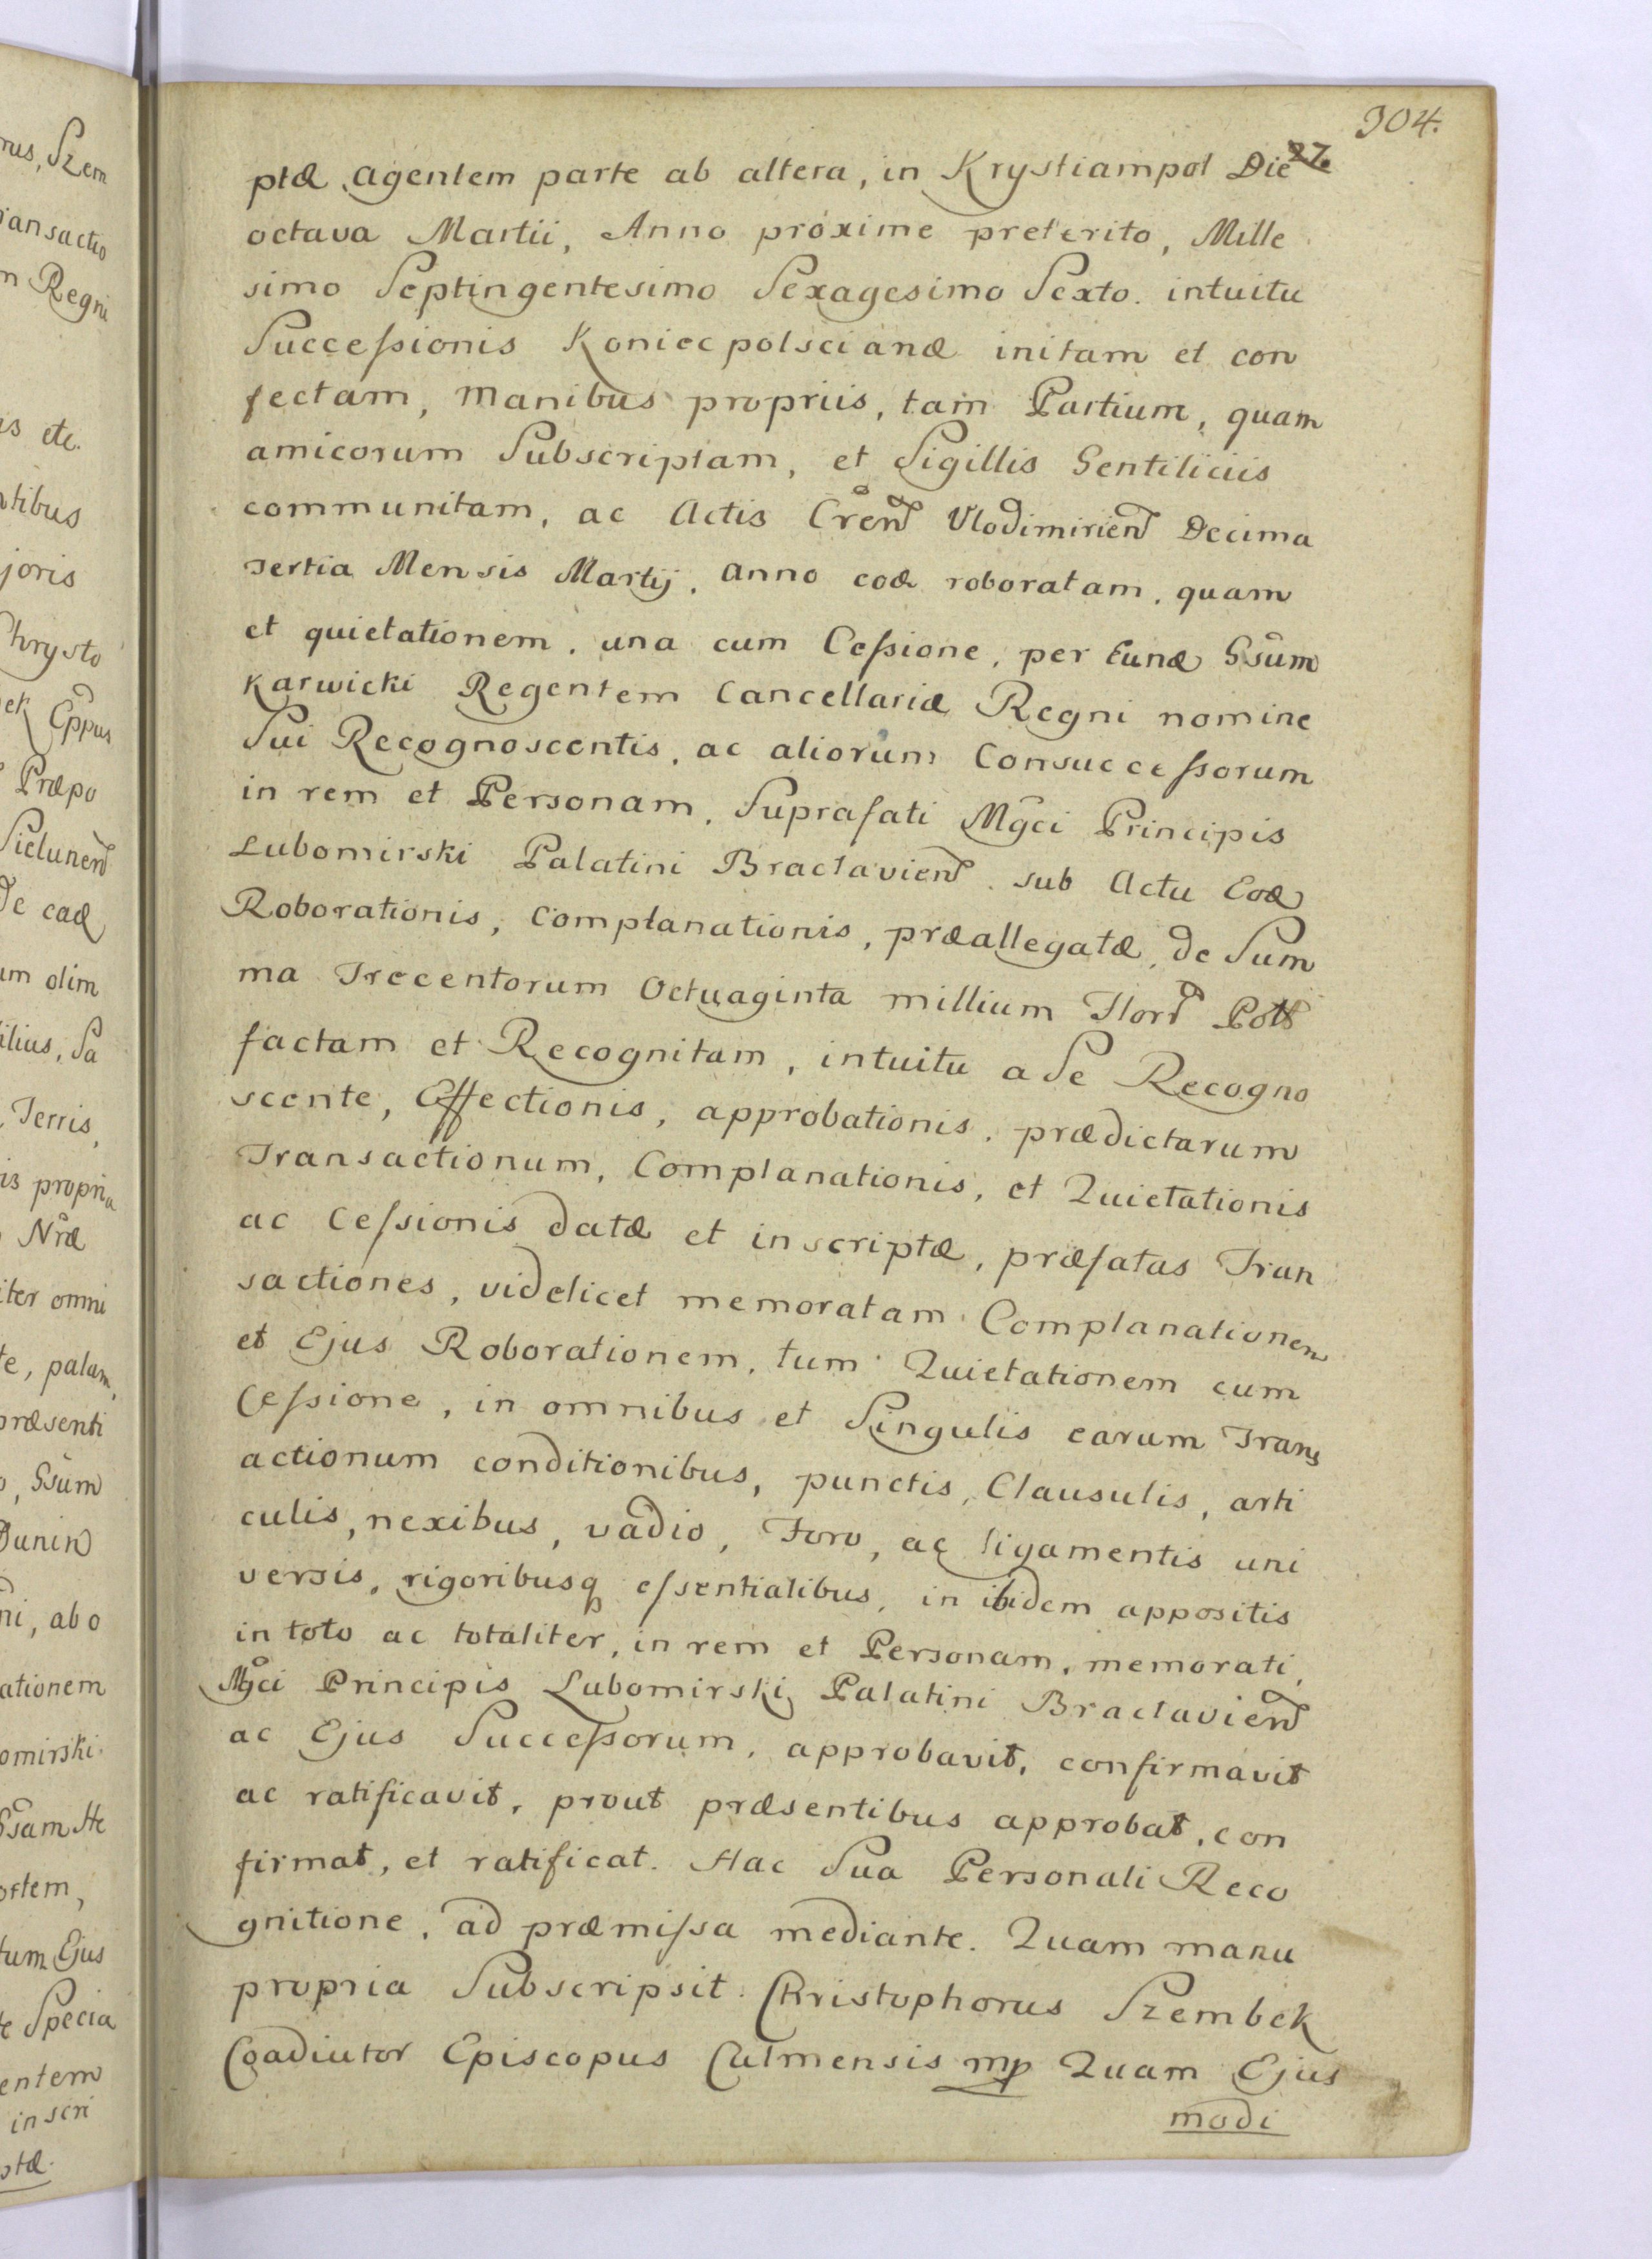 304.
27.
ptæ agentem parte ab altera, in Krystiampol Die
octava Martii, Anno proxime preterito, Mille
simo Septingentesimo Sexagesimo Sexto. intuitu
Successionis Koniecpolscianæ initam et con
fectam, manibus propriis, tam Partium, quam
amicorum Subscriptam, et Sigillis Gentiliciis
communitam, ac Actis Cren Vlodimirien Decima
tertia Mensis Martij. anno eod roboratam. quam
et quietationem. una cum Cessione, per Eund Gsum
Karwicki Regentem Cancellariæ Regni nomine
Sui Recognoscentis, ac aliorum Consuccessorum
in rem et Personam, Suprafati Mgci Principis
Lubomirski Palatini Braclavien. sub Actu Eod
Roborationis, Complanationis, præallegatæ, de Sum
ma Trecentorum Octuaginta millium Flor Poll
factam et Recognitam, intuitu a Se Recogno
scente, Effectionis, approbationis, prædictarum
Transactionum, Complanationis, et Quietationis
ac Cessionis datæ et inscriptæ, præfatas Tran
sactiones, videlicet memoratam Complanationem
et Ejus Roborationem, tum Quietationem cum
Cessione, in omnibus et Singulis earum Trans
actionum conditionibus, punctis, Clausulis, arti
culis, nexibus, vadio, Foro, ac ligamentis uni
versis, rigoribusq essentialibus, in ibidem appositis
in toto ac totaliter, in rem et Personam, memorati,
Mgci Principis Lubomirski Palatini Braclavien
ac Ejus Successorum, approbavit, confirmavit
ac ratificavit, prout præsentibus approbat, con
firmat, et ratificat. Hac Sua Personali Reco
gnitione, ad præmissa mediante. Quam manu
propria Subscripsit. Christophorus Szembek
Coadiutor Episcopus Culmensis mp Quam Ejus
modi